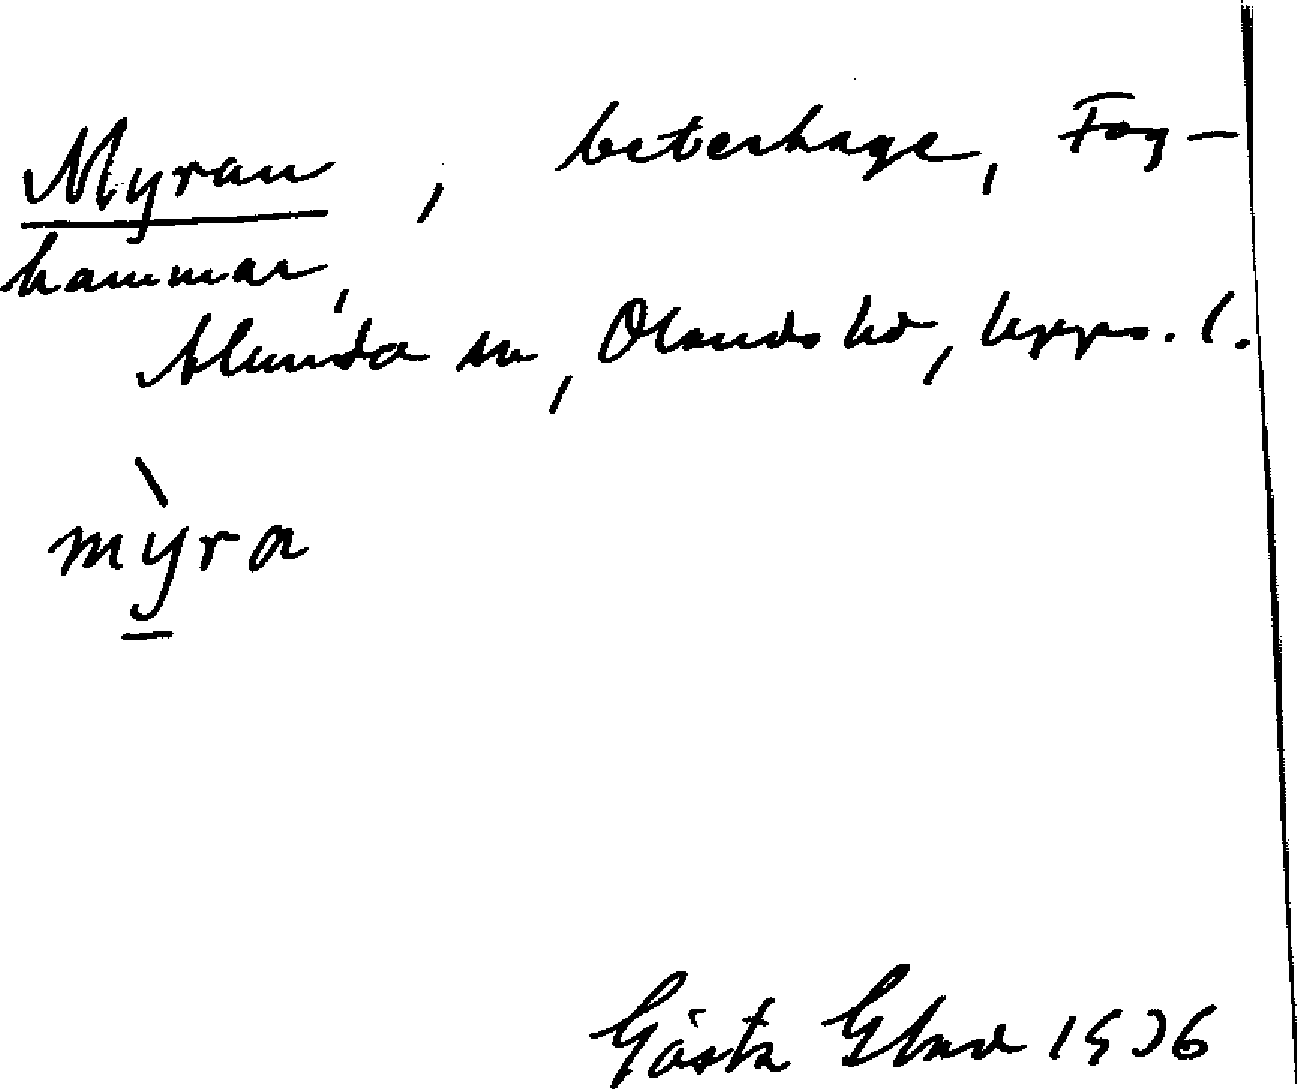 Myran, beteshage, Fog-
hammar,
Alunda sn, Olands hd, Upps. l.
mỳra
Gösta 1936